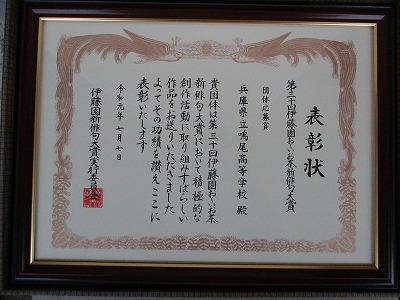 表彰状
第三十回伊藤園お〜いお茶新俳句大賞
団体応募賞
兵庫県立鳴尾高等学校 殿
貴団体は第三十回伊藤園お〜いお茶
新俳句大賞において積極的な
創作活動に取り組みすばらしい
作品をお送りいただきました
よってその功績を讃えここに
表彰いたします
令和元年 七月 七日
伊藤園新俳句大賞実行委員会